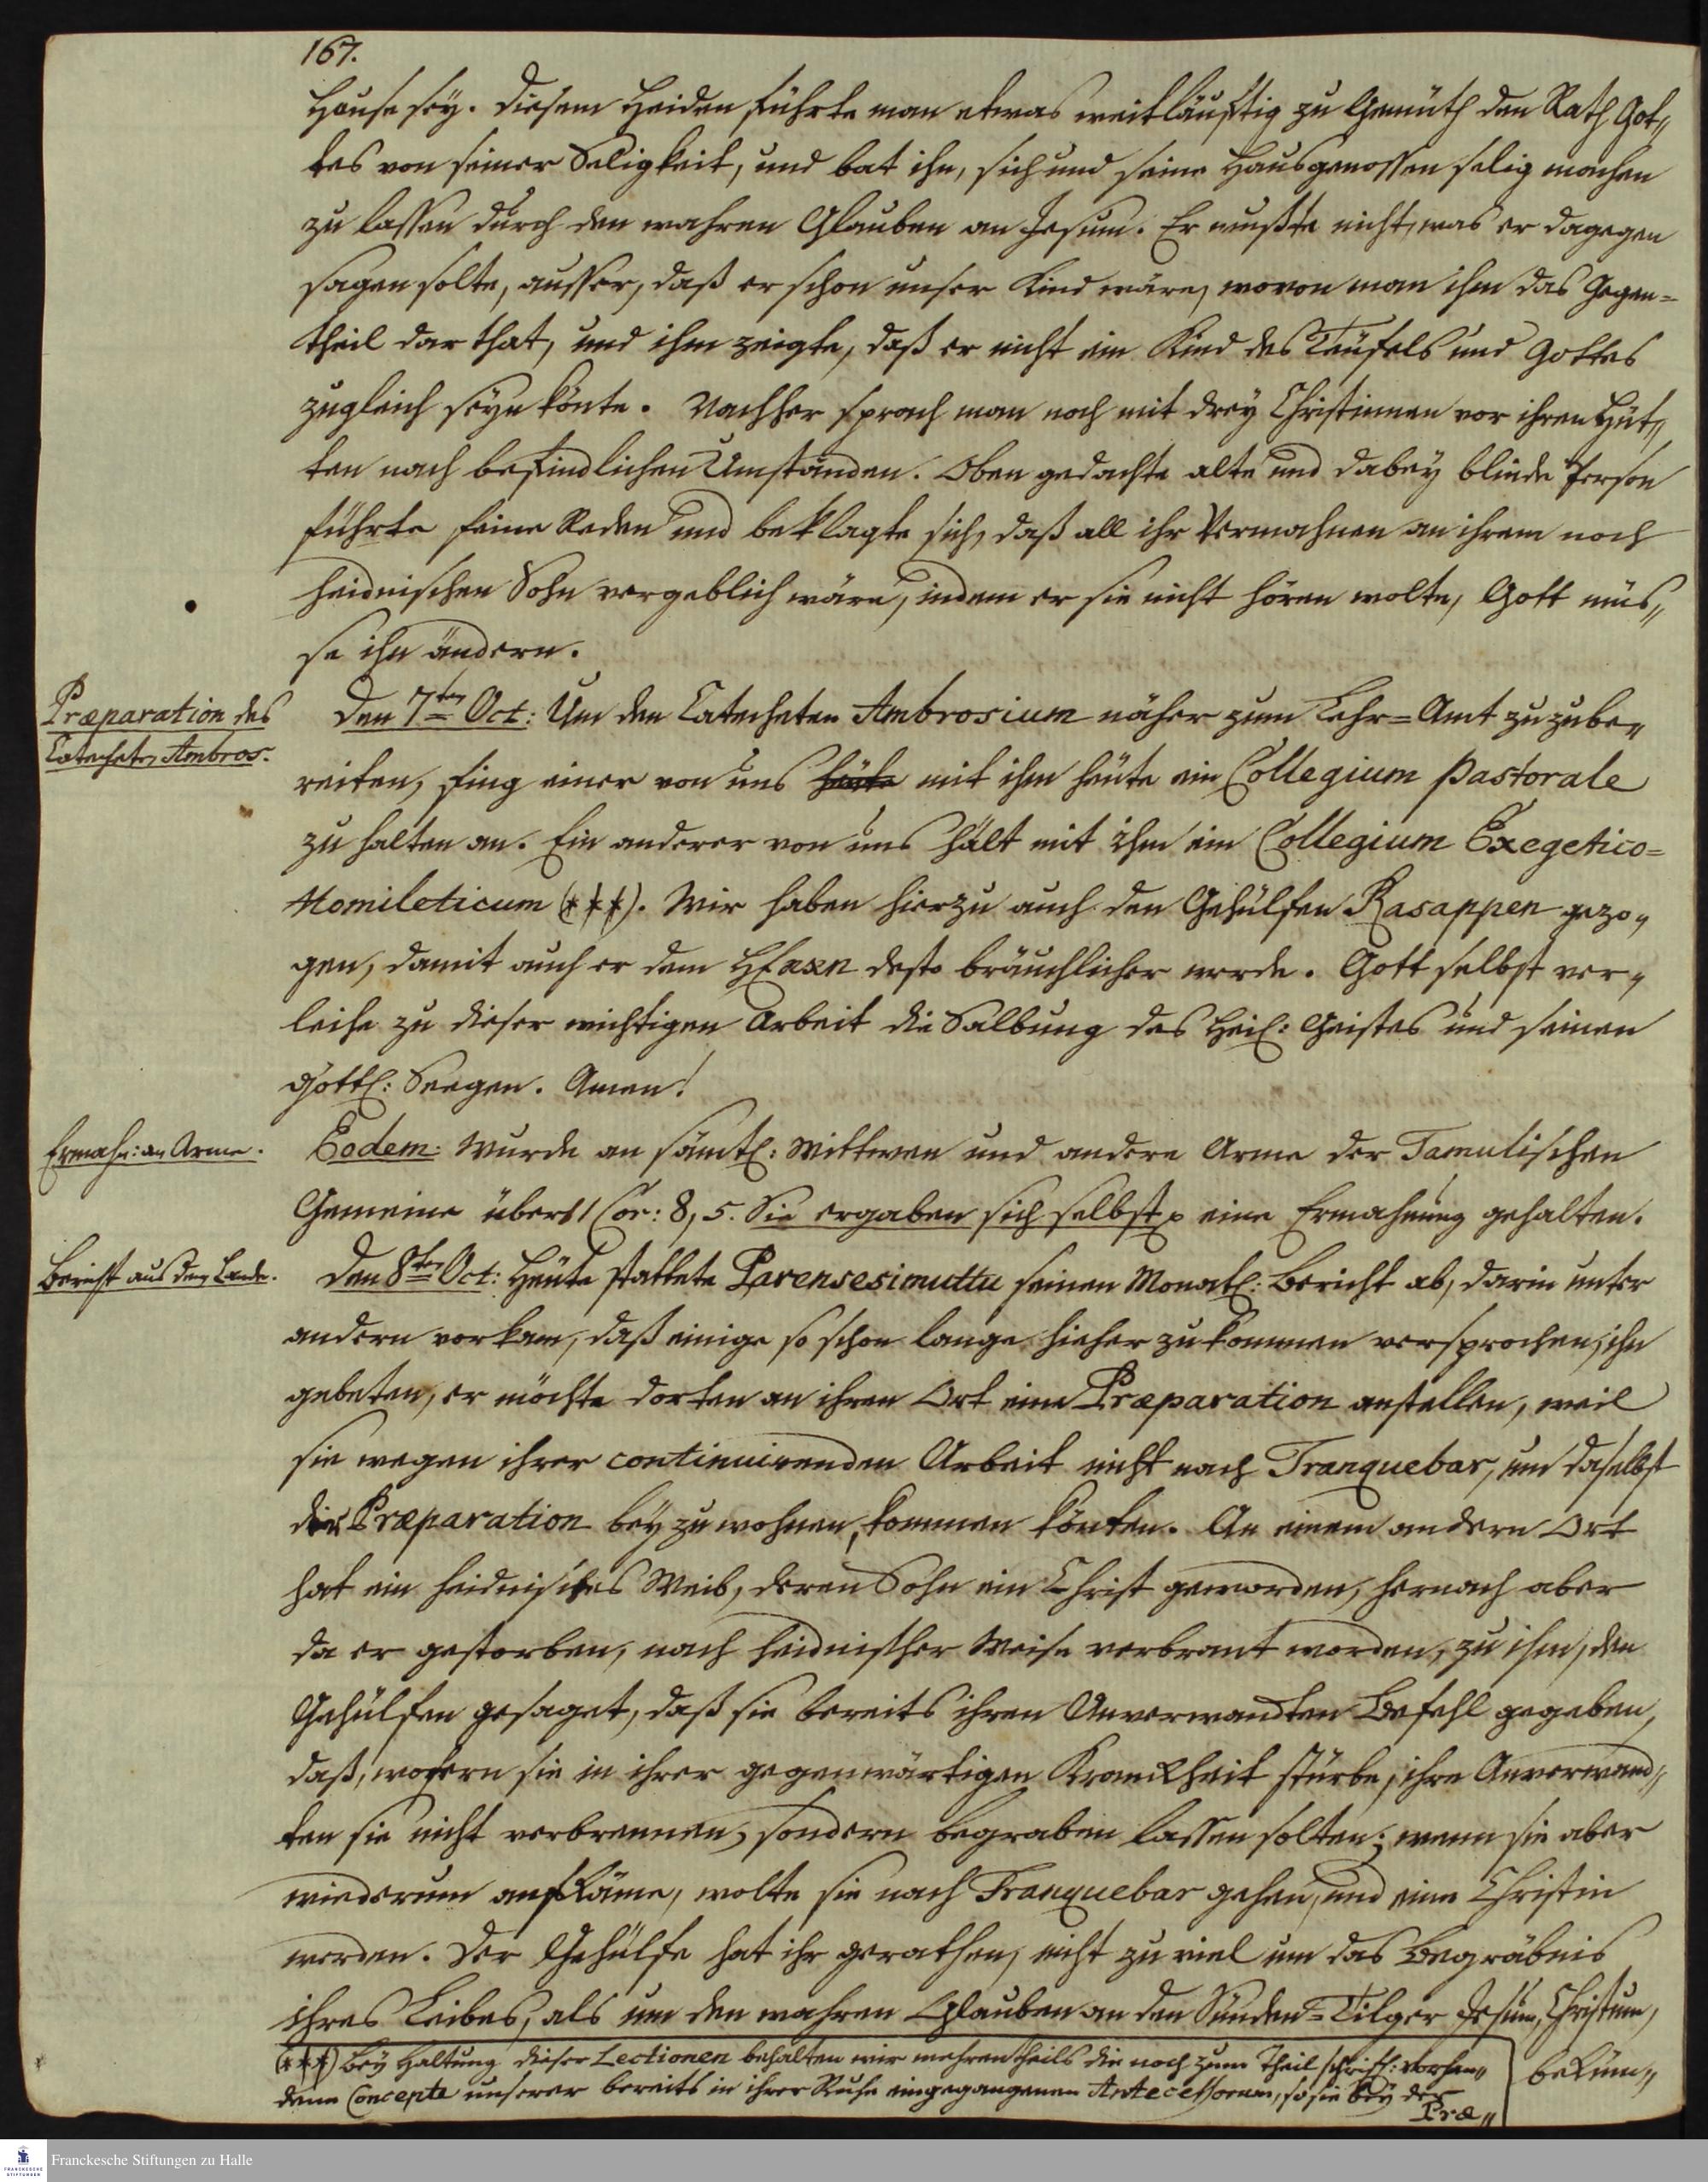 167.
Hause sey. Diesem Heiden führte man etwas weitläuftig zu Gemüth den Rath Got„
tes von seiner Seligkeit, und bat ihn, sich und seine Hausgenossen selig machen
zu lassen durch den wahren Glauben an Jesum. Er wußte nicht, was er dagegen
sagen solte, ausser, daß er schon unser Kind wäre, wovon man ihm das Gegen=
theil dar that, und ihm zeigte, daß er nicht ein Kind des Teufels und Gottes
zugleich seyn könte. Nachher sprach man noch mit drey Christinnen vor ihren Hüt„
ten nach befindlichen Umständen. Oben gedachte alte und dabey blinde Person
führte feine Reden und beklagte sich, daß all ihr Vermahnen an ihrem noch
heidnischen Sohn vergeblich wäre, indem er sie nicht hören wolte, Gott müs„
se ihn ändern.
Præparation des
Catechet: Ambros.
Den 7ten Oct: Um den Catecheten Ambrosium näher zum Lehr=Amt zuzube„
reiten, fing einer von uns heute mit ihm heute ein Collegium Pastorale
zu halten an. Ein anderer von uns hält mit ihm ein Collegium Exegetico=
Homileticum (***). Wir haben hierzu auch den Gehülfen Rasappen gezo„
gen, damit auch er dem HErrn desto bräuchlicher werde. Gott selbst ver„
leihe zu dieser wichtigen Arbeit die Salbung des Heil: Geistes und seinen
Göttl: Seegen. Amen!
Ermahn: an Arme.
Eodem: Wurde an sämtl: Wittwen und andere Arme der Tamulischen
Gemeine über 11 Cor: 8, 5. Sie ergaben sich selbst p eine Ermahnung gehalten.
Bericht aus dem Lande.
Den 8ten Oct: Heute stattete Parensesimuttu seinen Monatl: Bericht ab, darin unter
andern vorkam, daß einige so schon lange hieher zu kommen versprochen, ihn
gebeten, er möchte dorten an ihren Ort eine Præparation anstellen, weil
sie wegen ihrer continuirenden Arbeit nicht nach Tranquebar, um daselbst
der Præparation bey zu wohnen, kommen könten. An einem andern Ort
hat ein heidnisches Weib, deren Sohn ein Christ geworden, hernach aber
da er gestorben, nach heidnischer Weise verbrant worden, zu ihm, den
Gehülfen gesaget, daß sie bereits ihren Anverwandten Befehl gegeben,
daß, wofern sie in ihrer gegenwärtigen Kranckheit stürbe, ihre Anverwand„
ten sie nicht verbrennen, sondern begraben lassen solten; wenn sie aber
wiederum aufkäme, wolte sie nach Tranquebar gehen, und eine Christin
werden. Der Gehülfe hat ihr gerathen, nicht zu viel um das Begräbnis
ihres Leibes, als um den wahren Glauben an den Sünden=Tilger Jesum Christum,
bekum„
(***) Bey Haltung dieser Lectionen behalten wir mehrentheils die noch zum Theil schriftl: vorhan„
dene Concepte unserer bereits in ihrer Ruhe eingegangenen Antecessorum, so sie bey der
Præ„
Franckesche Stiftungen zu Halle
FRANCKESCHE
STIFTUNGEN